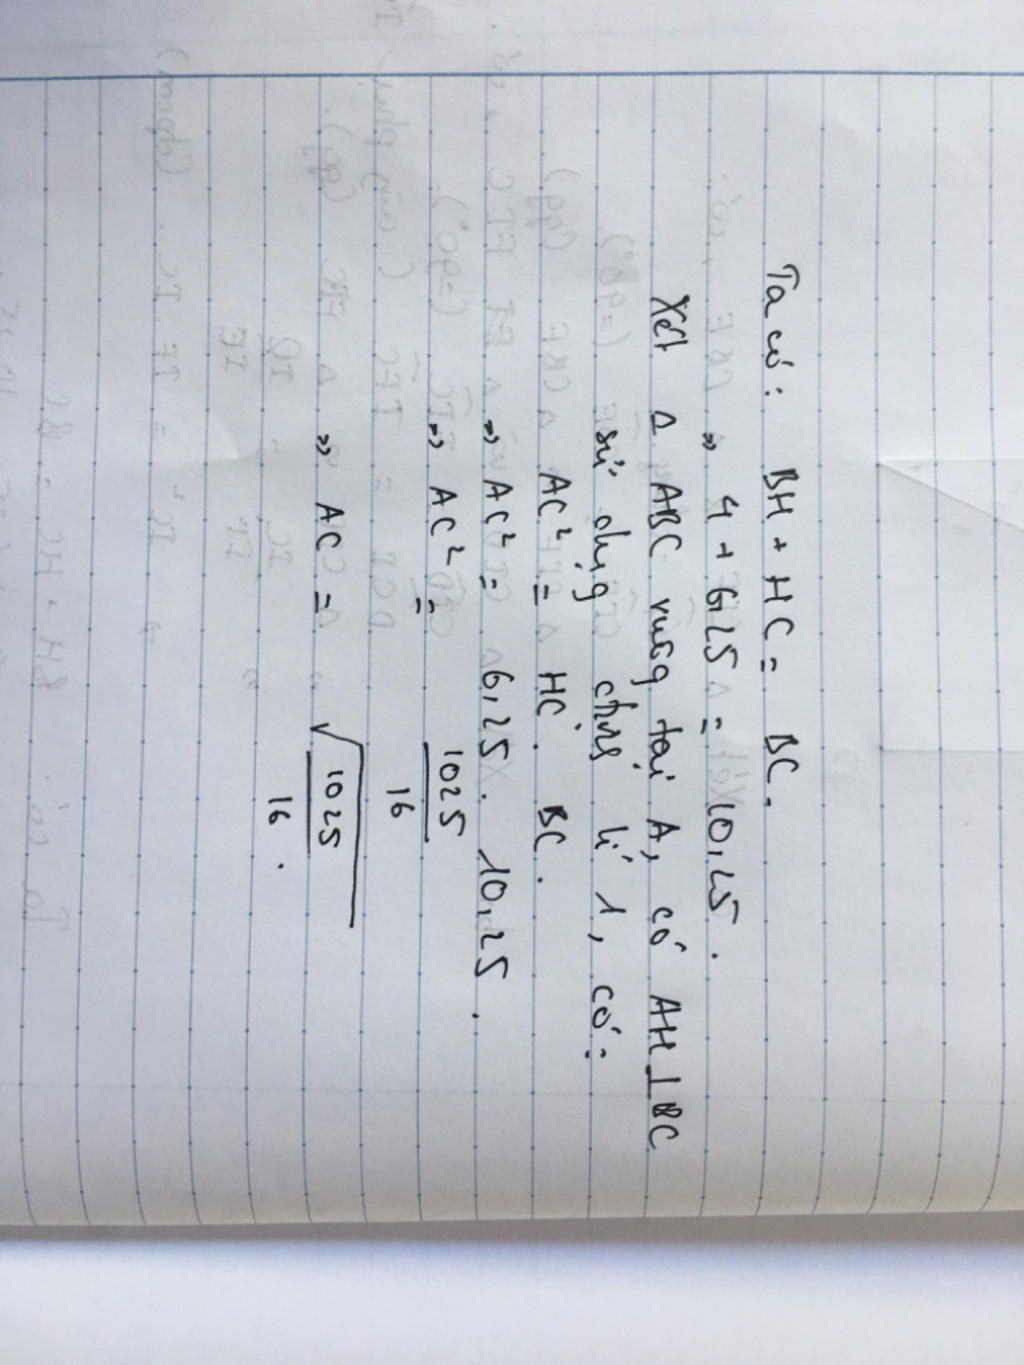 Ta có: BH + HC = BC.
=> 4 + 6,25 = 10,25.
Xét Δ ABC vuông tại A, có AH ⊥ BC
sử dụng lí 1, có:
AC² = HC . BC.
=> AC² = 6,25 . 10,25.
=> AC² = 1025/16
=> AC = √(1025/16).